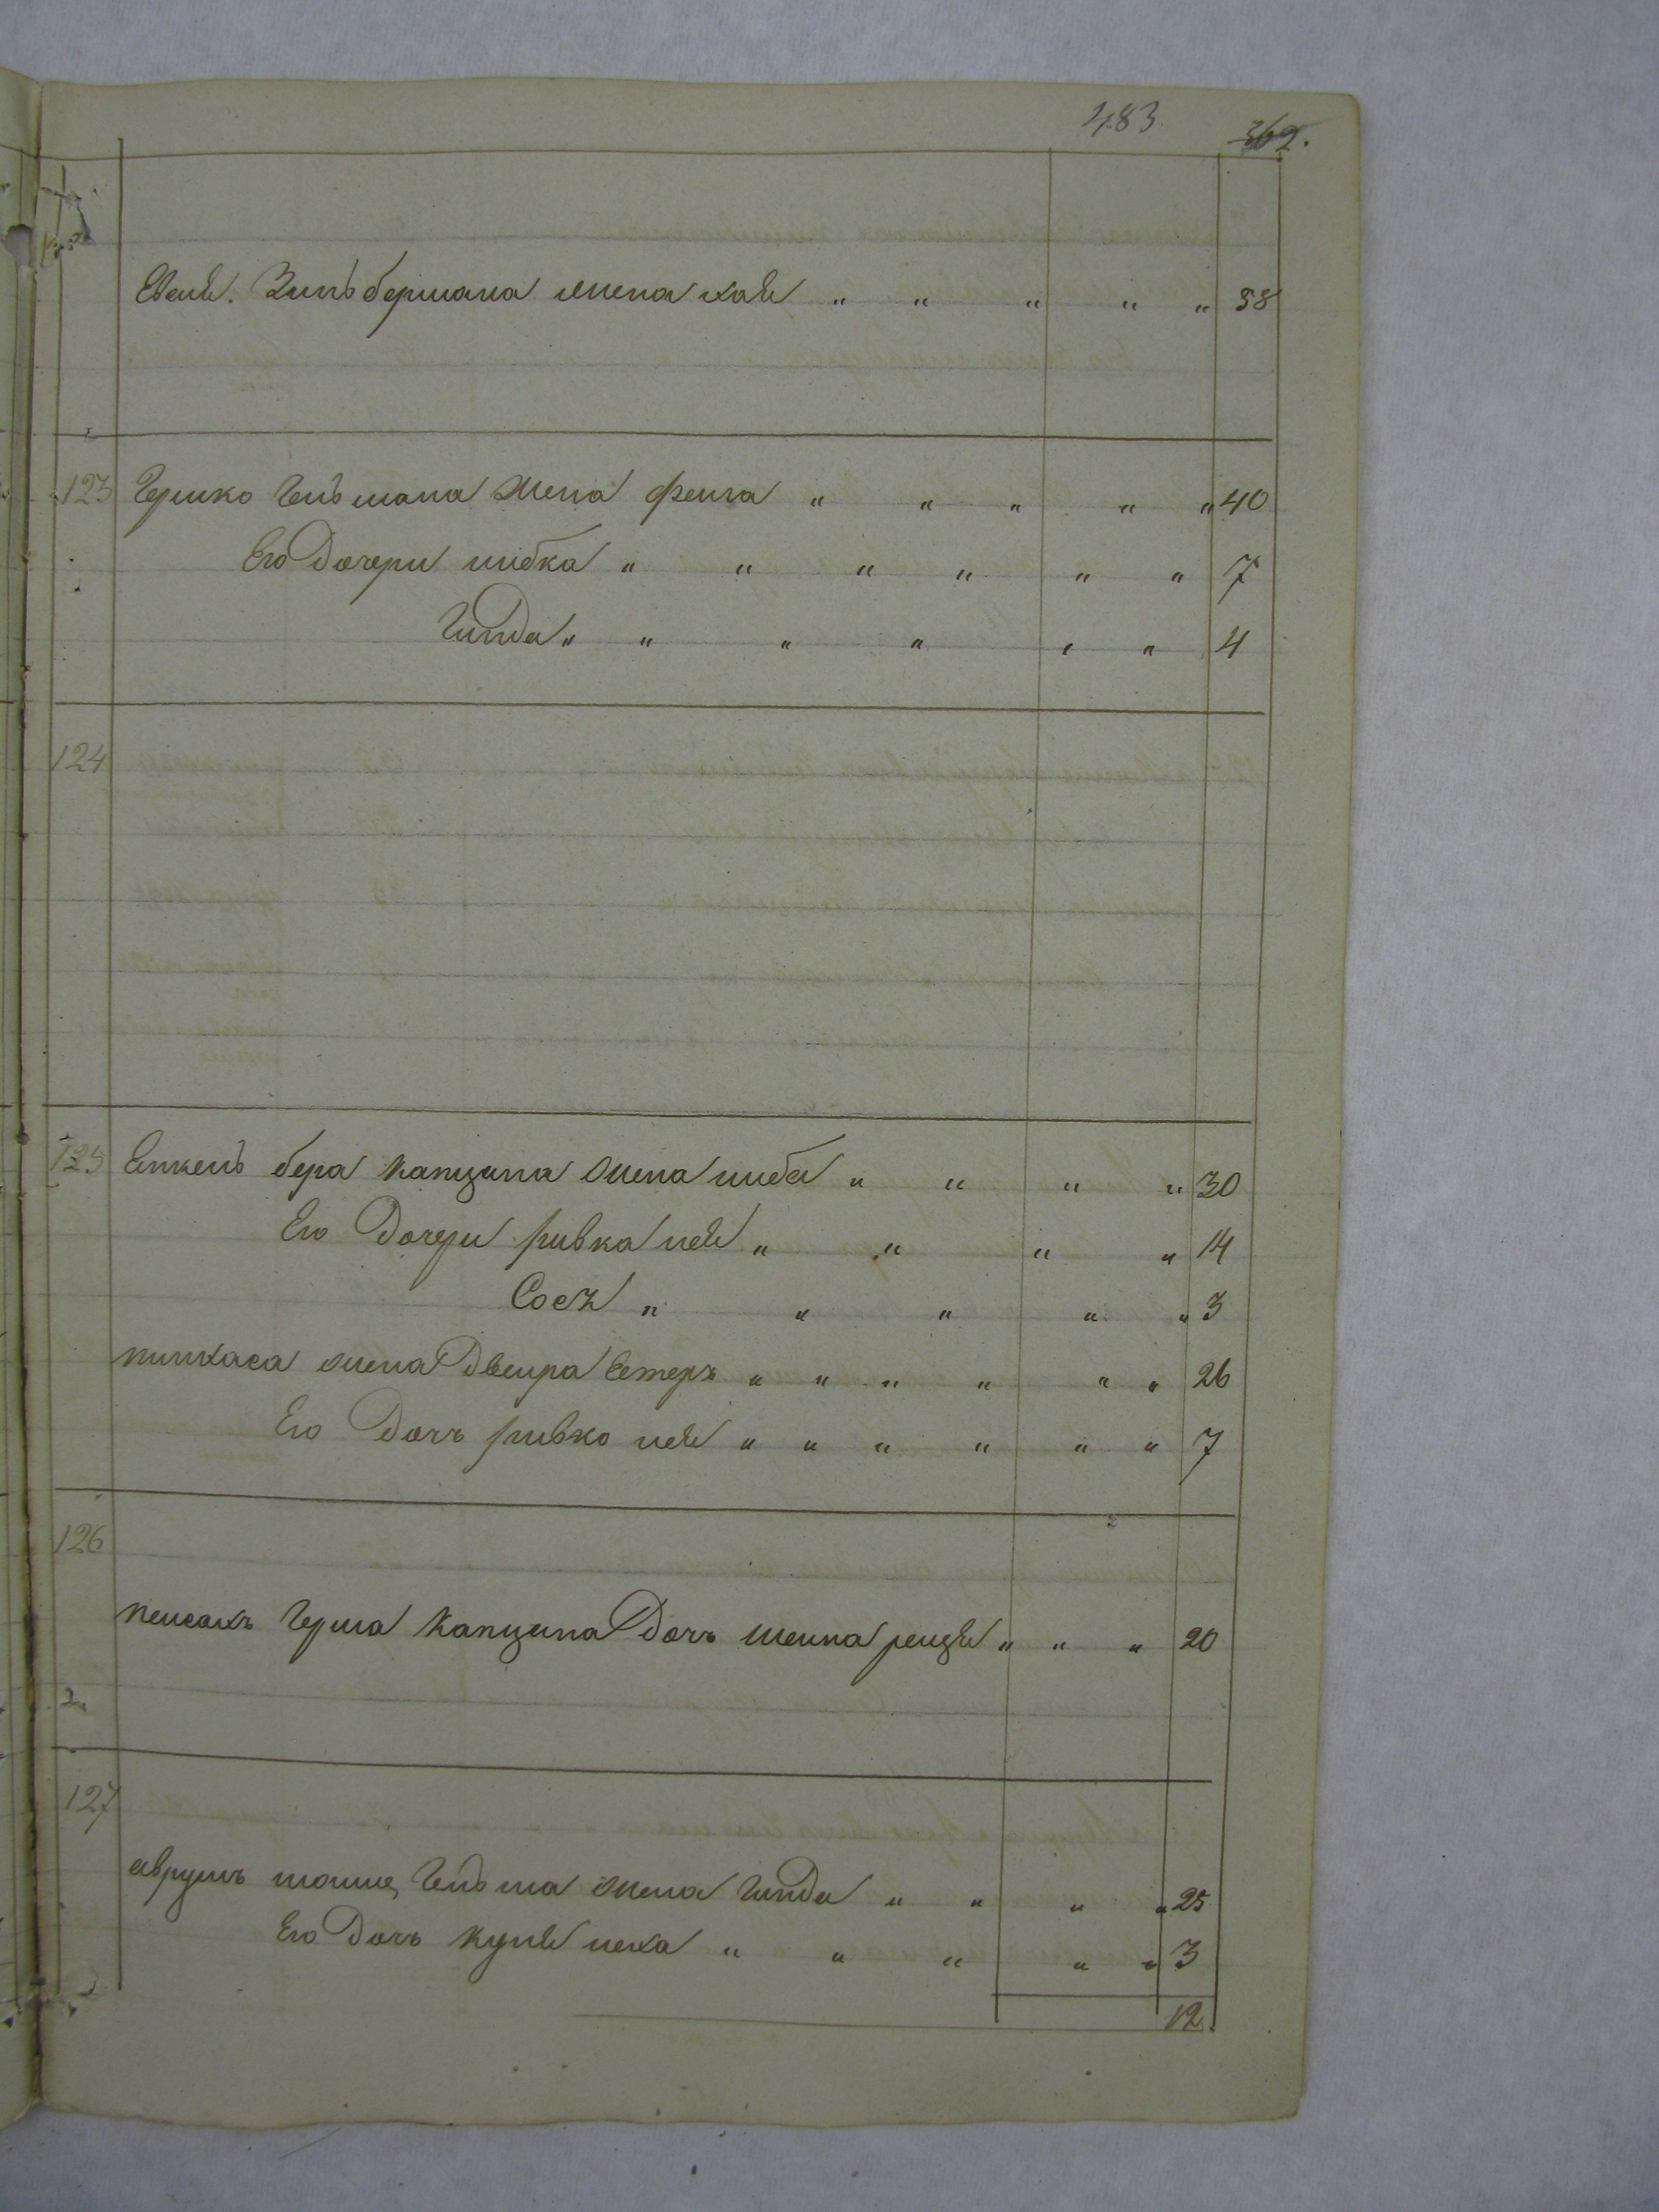 483 362.
Зильбермана жена хая " " " " " 58
123 Гершко Гельмана жена фейга " " " " " 40
Его Дочери либка " " " " " " 7
Гинда " " " " " " 4
124
125 бера Капцана жена либа " " " " 30
Его Дочери ривка лея " " " " 14
Сося " " " " " 3
пинхаса жена Двейра Естеръ " " " " " " 26
Его Дочь ривко лея " " " " " " 7
126
пейсахъ Герша Капцана Дочь шейна рейзя " " " 20
127
аврумъ жена Гинда " " " " 25
Его Дочь " " " " " 3
12.